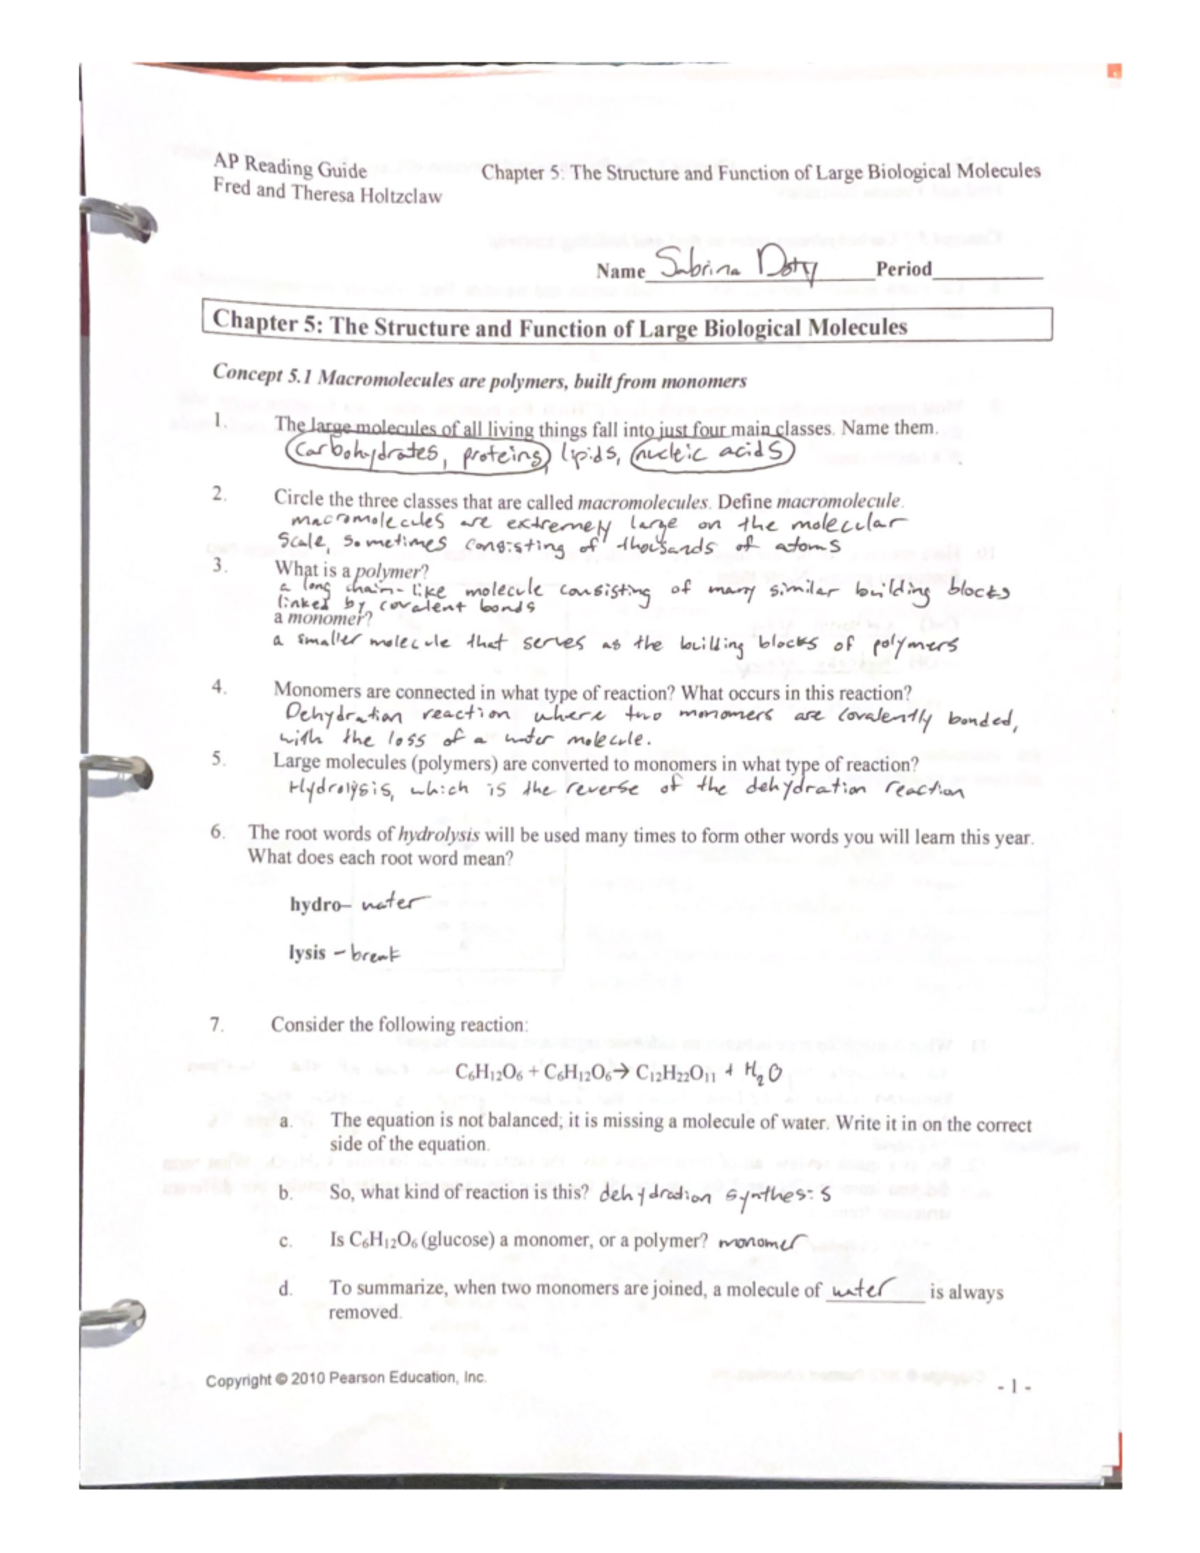 AP Reading Guide
Fred and Theresa Holtzclaw
Chapter 5: The Structure and Function of Large Biological Molecules
Name Sabrina Doty Period
Chapter 5: The Structure and Function of Large Biological Molecules
Concept 5.1 Macromolecules are polymers, built from monomers
1. The large molecules of all living things fall into just four main classes. Name them.
Carbohydrates, proteins, lipids, nucleic acids
2. Circle the three classes that are called macromolecules. Define macromolecule.
macromolecules are extremely large on the molecular
scale, sometimes consisting of thousands of atoms
3. What is a polymer?
a long chain-like molecule consisting of many similar building blocks
linked by covalent bonds
a monomer?
a smaller molecule that serves as the building blocks of polymers
4. Monomers are connected in what type of reaction? What occurs in this reaction?
Dehydration reaction where two monomers are covalently bonded,
with the loss of a water molecule.
5. Large molecules (polymers) are converted to monomers in what type of reaction?
Hydrolysis, which is the reverse of the dehydration reaction
6. The root words of hydrolysis will be used many times to form other words you will learn this year.
What does each root word mean?
hydro– water
lysis – break
7. Consider the following reaction:
C6H12O6 + C6H12O6→ C12H22O11 + H2O
a. The equation is not balanced; it is missing a molecule of water. Write it in on the correct
side of the equation.
b. So, what kind of reaction is this? dehydration synthesis
c. Is C6H12O6 (glucose) a monomer, or a polymer? monomer
d. To summarize, when two monomers are joined, a molecule of water is always
removed.
Copyright © 2010 Pearson Education, Inc.
- 1 -